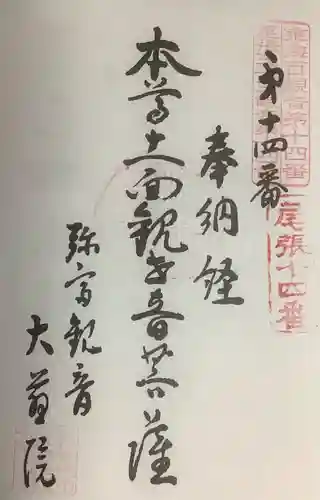 東海百観音第十四番
尾張十四番
第十四番
奉納経
本尊十一面観世音菩薩
弥富観音
大慈院